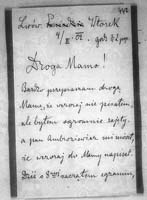 Lwów Wtorek
Droga Mamo!
Bardzo przepraszam drogą
Mamę, że wczoraj nie pisałem,
ale byłem ogromnie zajęty.
a pan Ambroziewicz mi mówił,
że wczoraj do Mamy napisał.
Dziś o 8 egzamin,